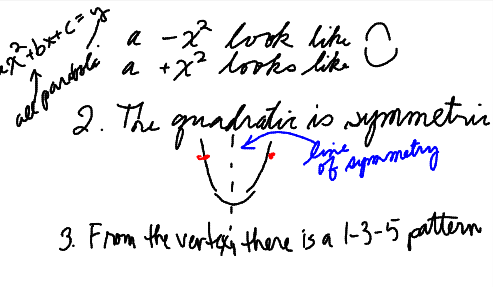 ax²+bx+c=y
all parabola
a -x² look like
a +x² looks like
2. The quadratic is symmetric
line
of symmetry
3. From the vertex, there is a 1-3-5 pattern